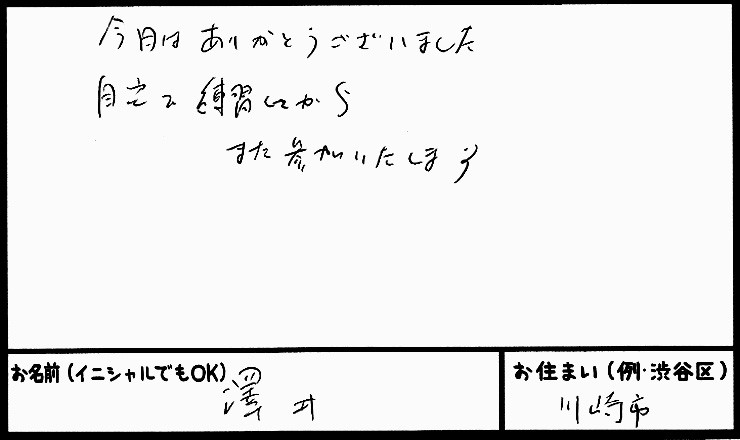 今日はありがとうございました
自宅で練習してから
また参加いたします
お名前(イニシャルでもOK)
澤井
お住まい(例・渋谷区)
川崎市